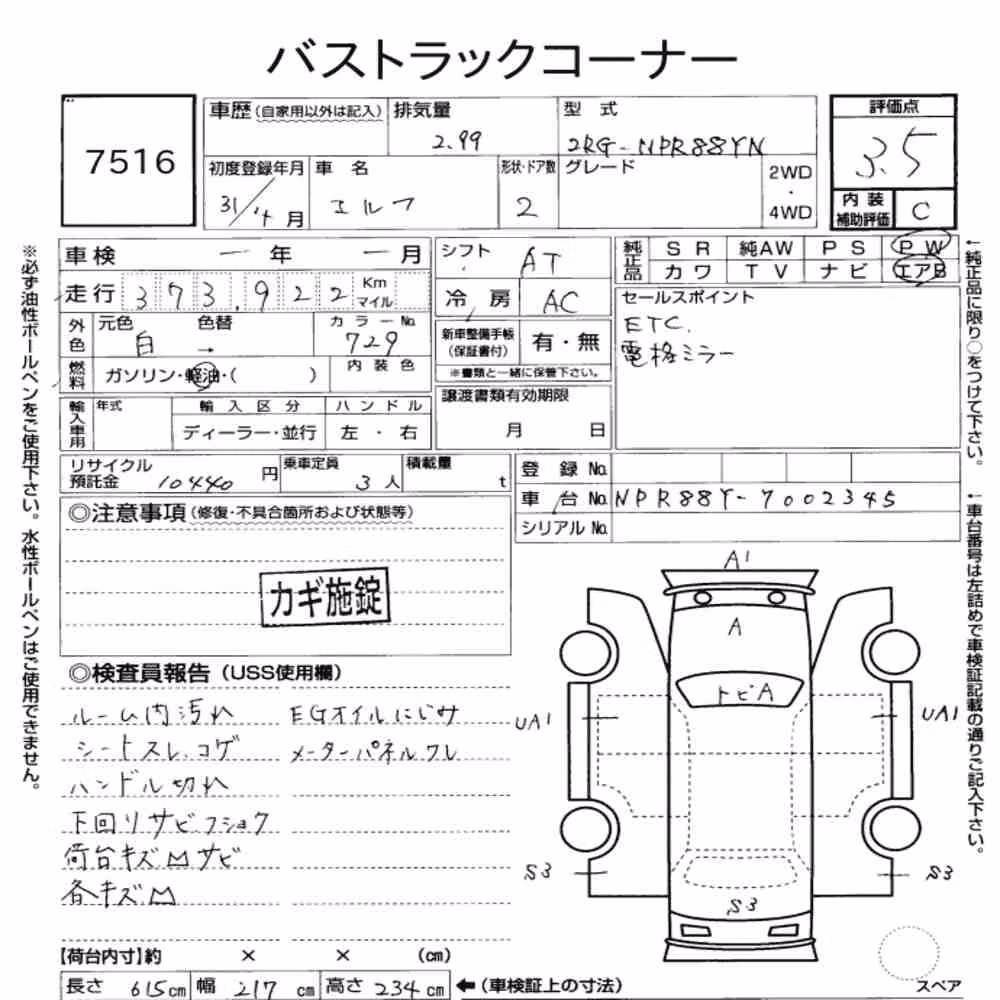 バストラックコーナー
7516
車歴 (自家用以外は記入)
排気量
2.99
型 式
2RG-NPR88YN
評価点
3.5
初度登録年月
31/4月
車 名
エルフ
形状・ドア数
2
グレード
2WD
・
4WD
内装
補助評価
C
※必ず油性ボールペンをご使用下さい。水性ボールペンはご使用できません。
車検 ー 年 ー 月
走行 373,922 Km
マイル
シフト
AT
冷 房 AC
純正品
SR 純AW PS PW
カワ TV ナビ エアB
外色
元色
白
色替
→
カラーNo.
729
燃料 ガソリン・軽油・( )
内装色
新車整備手帳
(保証書付)
有・無
※書類と一緒に保管下さい。
セールスポイント
ETC.
電格ミラー
輸入車用
年式
輸入区分
ディーラー・並行
ハンドル
左・右
譲渡書類有効期限
月 日
リサイクル
預託金 10440円
乗車定員
3人
積載量
t
登 録 No.
車 台 No. NPR88Y-7002345
シリアル No.
←純正品に限り○をつけて下さい。
←車台番号は左詰めで車検証記載の通りご記入下さい。
◎注意事項(修復・不具合箇所および状態等)
カギ施錠
◎検査員報告(USS使用欄)
ルーム内汚れ EGオイルにじみ
シートスレ、コゲ メーターパネルワレ
ハンドル切れ
下回りサビフショク
荷台キズ凹サビ
各キズ凹
A1
A
トビA
UA1
UA1
S3
S3
S3
スペア
【荷台内寸】約 × × (cm)
長さ 615cm 幅 217cm 高さ 234cm ←(車検証上の寸法)